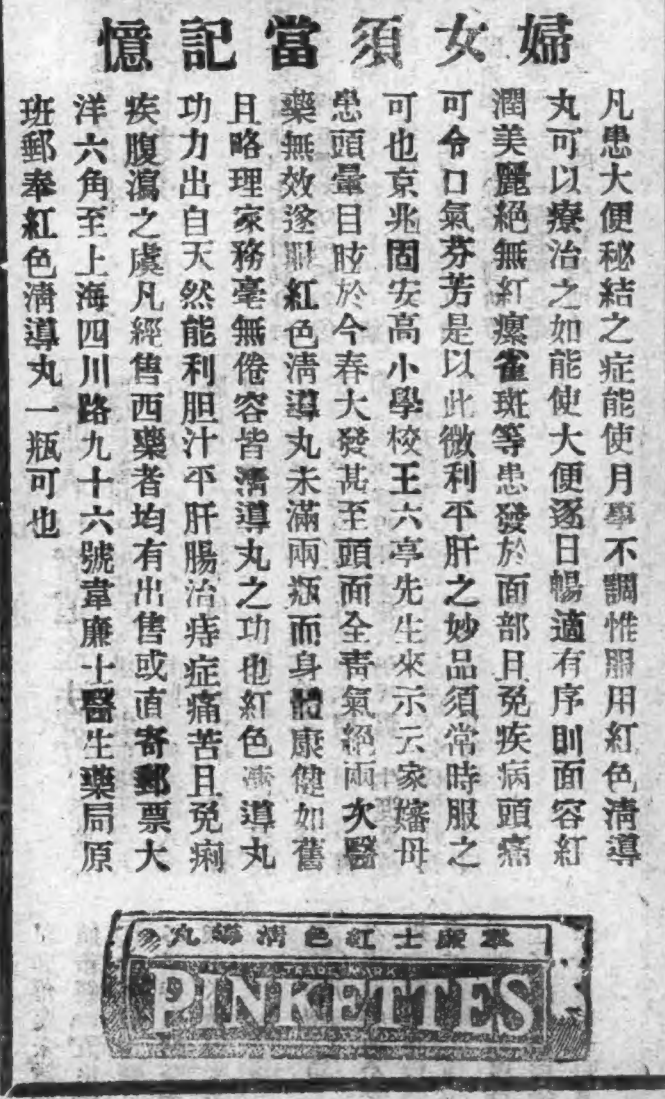 婦女須當記憶
凡患大便秘結之症能使月事不調惟服用紅色清導
丸可以療治之如能使大便逐日暢適有序則面容紅
潤美麗絕無紅瘰雀斑等患發於面部且免疾病頭痛
可令口氣芬芳是以此微利平肝之妙品須常時服之
可也京兆固安高小學校王六亭先生來示云家嬸母
患頭暈目眩於今春大發甚至頭面全青氣絕兩次醫
藥無效遂服紅色清導丸未滿兩瓶而身體康健如舊
且略理家務毫無倦容皆清導丸之功也紅色清導丸
功力出自天然能利胆汁平肝腸治痔症痛苦且免痢
疾腹瀉之虞凡經售西藥者均有出售或直寄郵票大
洋六角至上海四川路九十六號韋廉士醫生藥局原
班郵奉紅色清導丸一瓶可也
韋廉士紅色清導丸
TRADE MARK
PINKETTES